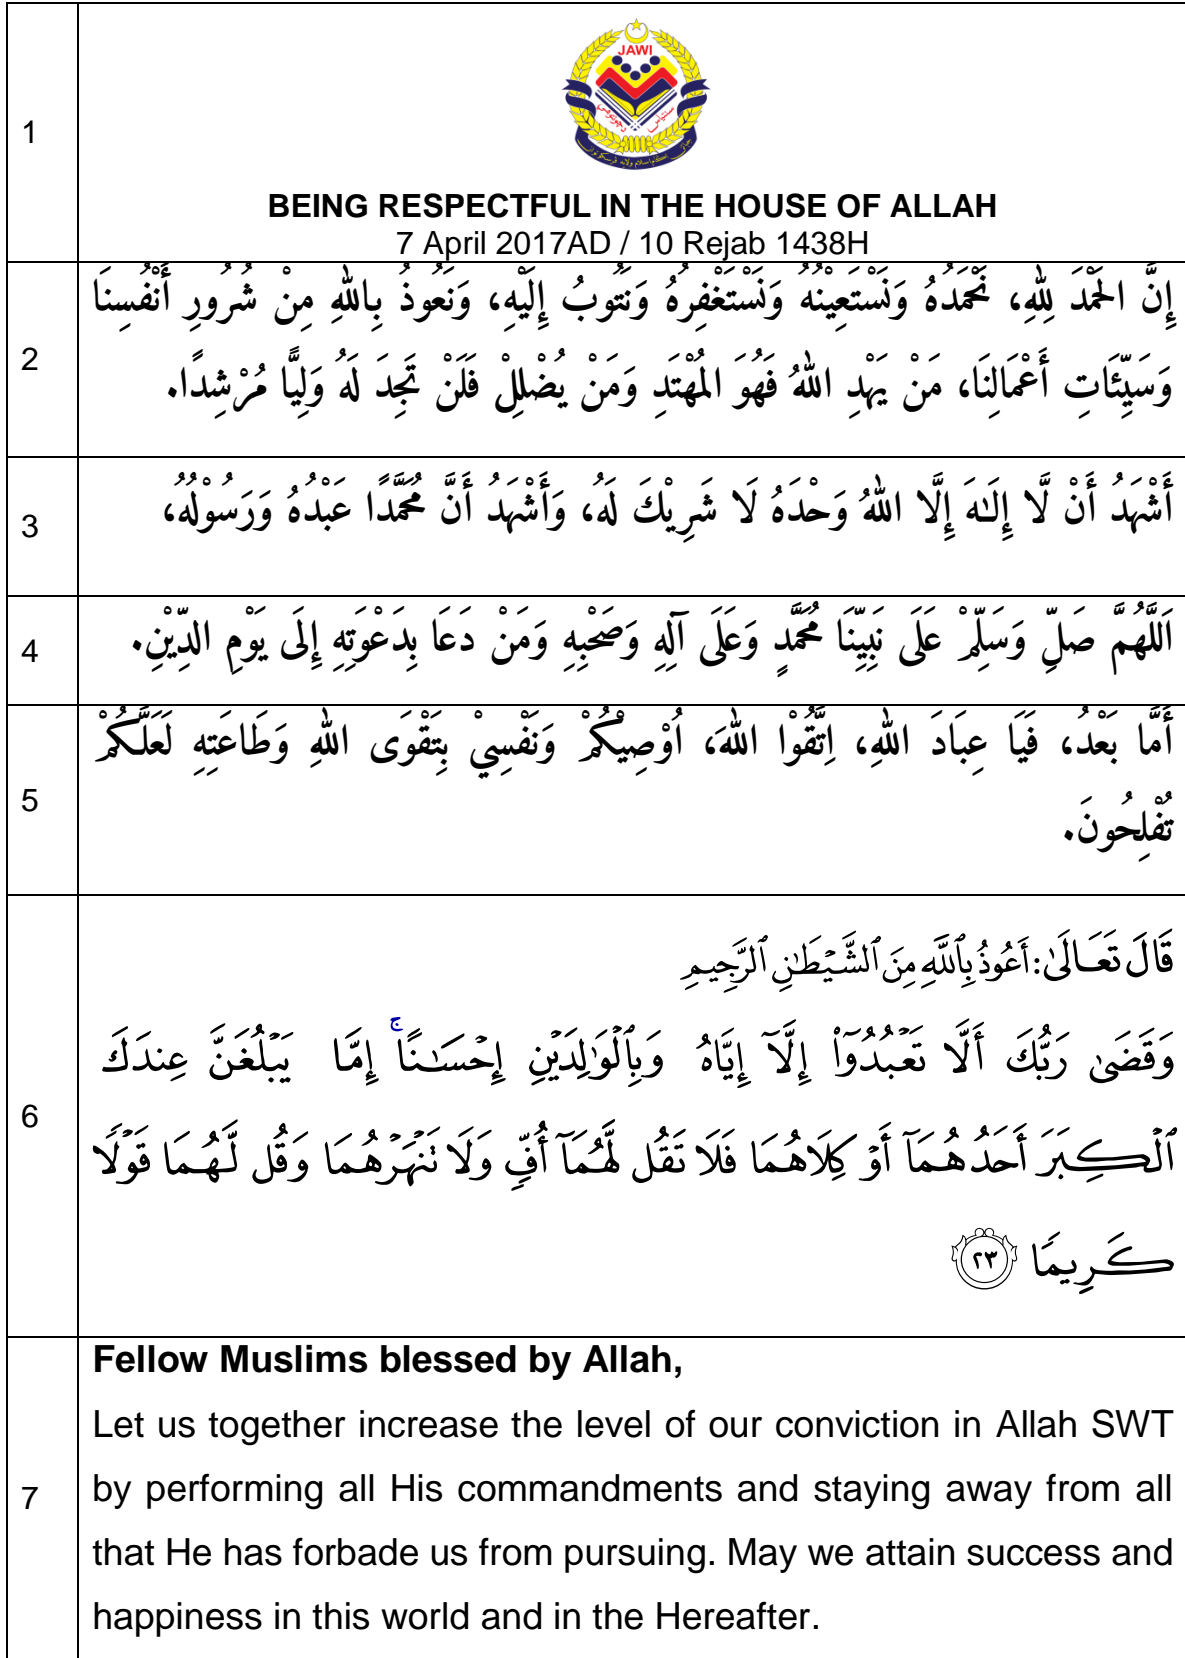 1
JAWI
BEING RESPECTFUL IN THE HOUSE OF ALLAH
7 April 2017AD / 10 Rejab 1438H
2
إِنَّ الحَمْدَ لِلّٰهِ، نَحْمَدُهُ وَنَسْتَعِيْنُهُ وَنَسْتَغْفِرُهُ وَنَتُوبُ إِلَيْهِ، وَنَعُوذُ بِاللّٰهِ مِنْ شُرُورِ أَنْفُسِنَا
وَسَيِّئَاتِ أَعْمَالِنَا، مَنْ يَهْدِ اللهُ فَهُوَ المُهْتَدِ وَمَنْ يُضْلِلْ فَلَنْ تَجِدَ لَهُ وَلِيًّا مُرْشِدًا.
3
أَشْهَدُ أَنْ لَّا إِلَـٰهَ إِلَّا اللهُ وَحْدَهُ لَا شَرِيْكَ لَهُ، وَأَشْهَدُ أَنَّ مُحَمَّدًا عَبْدُهُ وَرَسُوْلُهُ،
4
اَللَّهُمَّ صَلِّ وَسَلِّمْ عَلَى نَبِيِّنَا مُحَمَّدٍ وَعَلَى آلِهِ وَصَحْبِهِ وَمَنْ دَعَا بِدَعْوَتِهِ إِلَى يَوْمِ الدِّيْنِ.
5
أَمَّا بَعْدُ، فَيَا عِبَادَ اللهِ، اِتَّقُوْا اللهَ، اُوْصِيْكُمْ وَنَفْسِيْ بِتَقْوَى اللهِ وَطَاعَتِهِ لَعَلَّكُمْ
تُفْلِحُونَ.
6
قَالَ تَعَالَىٰ: أَعُوذُ بِٱللَّهِ مِنَ ٱلشَّيْطَٰنِ ٱلرَّجِيمِ
وَقَضَىٰ رَبُّكَ أَلَّا تَعْبُدُوٓا۟ إِلَّآ إِيَّاهُ وَبِٱلْوَٰلِدَيْنِ إِحْسَـٰنًا ۚ إِمَّا يَبْلُغَنَّ عِندَكَ
ٱلْكِبَرَ أَحَدُهُمَآ أَوْ كِلَاهُمَا فَلَا تَقُل لَّهُمَآ أُفٍّ وَلَا تَنْهَرْهُمَا وَقُل لَّهُمَا قَوْلًا
كَرِيمًا ٢٣
7
Fellow Muslims blessed by Allah,
Let us together increase the level of our conviction in Allah SWT
by performing all His commandments and staying away from all
that He has forbade us from pursuing. May we attain success and
happiness in this world and in the Hereafter.